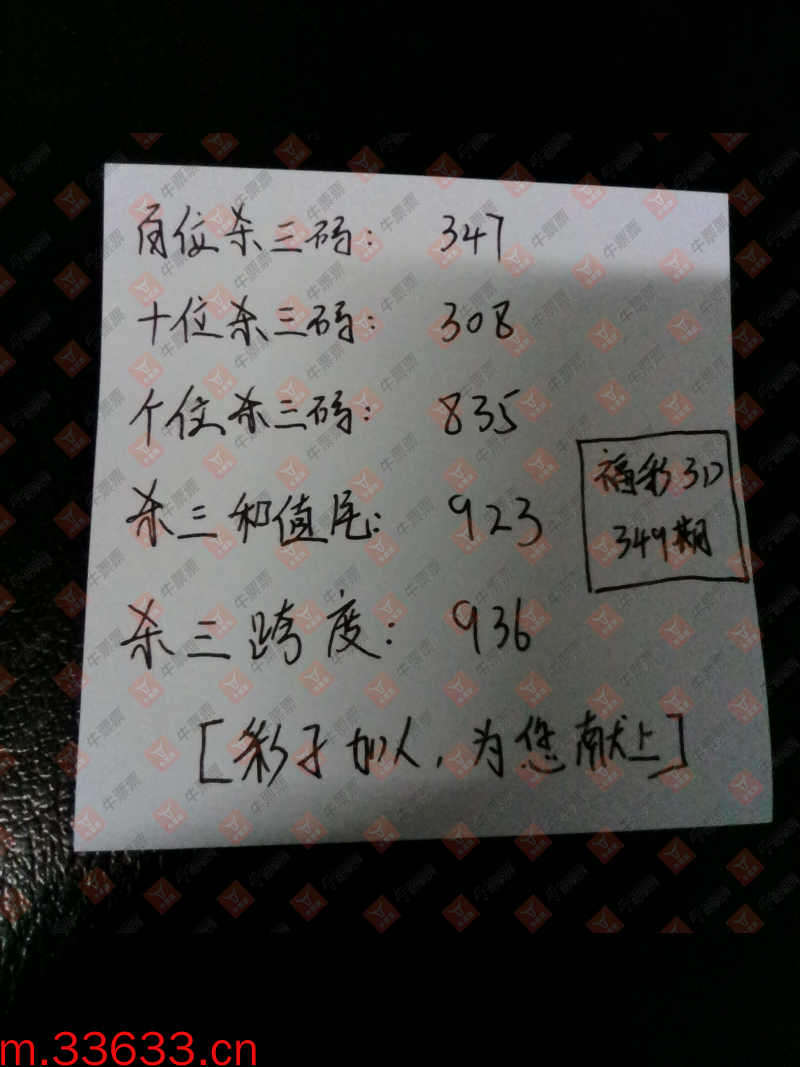 百位杀三码: 347
十位杀三码: 308
个位杀三码: 835
杀三和值尾: 923
福彩3D
349期
杀三跨度: 936
[彩子加人,为您献上]
牛票票
m.33633.cn